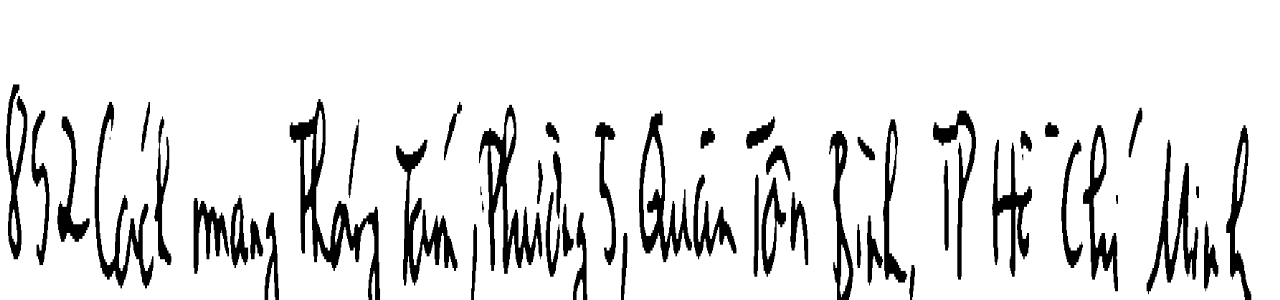 852 Cách mạng Tháng Tám, Phường 5, Quận Tân Bình, TP Hồ Chí Minh